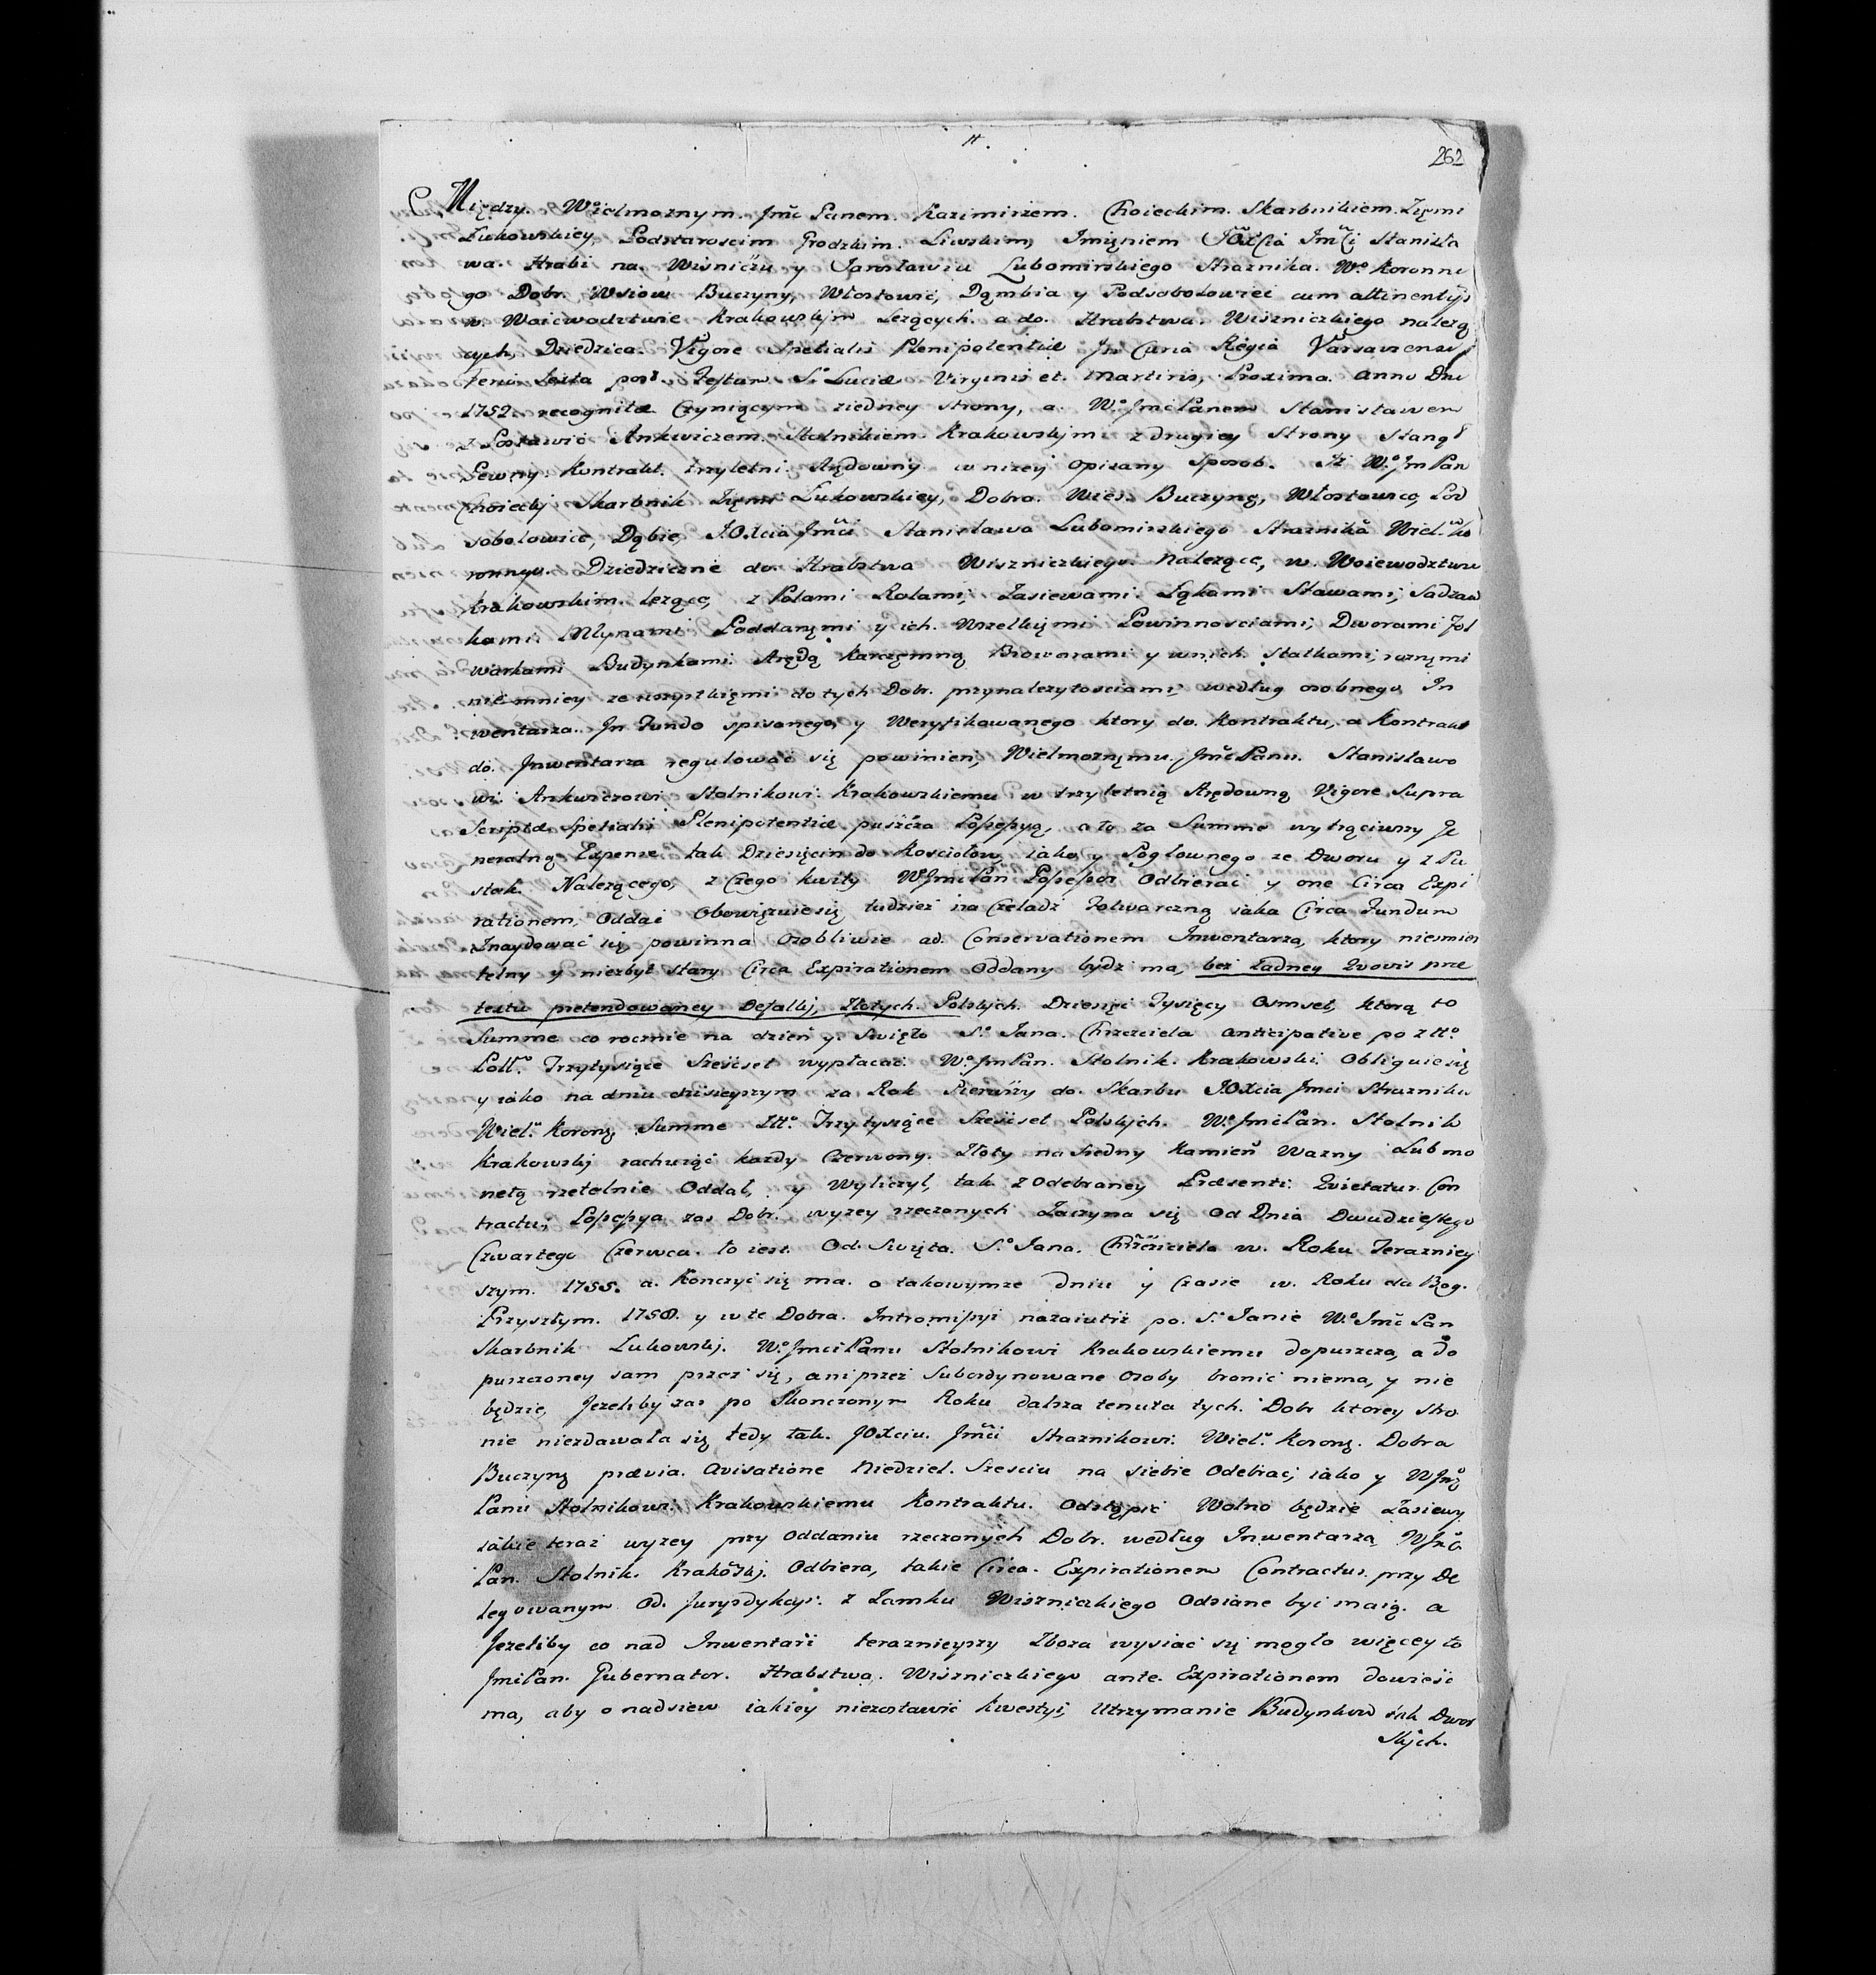 262
Między. Wielmoznym. Jmć Panem. Kazimirzem. Choieckim. Skarbnikiem. Zięmi
Łukowskiey, Podstarościm Grodzkim. Liwskim, Imięniem JOXcia Jmći Stanisła
wa. Hrabi na. Wisniczu y Jarosławiu Lubomirskiego Straznika. W.º Koronne
go Dobr. Wsiow Buczyny, Włostowic, Dąmbia y Podsobolowice cum attinentijs
w. Woiewodztwie Krakowskim Lezących. a do. Hrabstwa. Wiszniczkiego należą
cych, Dziedzica. Vigore Spetialis Plenipotentiæ In Curia Regia Varsaviensi
feria Sexta post. Festum S. Luciæ Virginis et. Martiris, Proxima. Anno Dni
1752. recognitæ Czyniącym ziedney strony, a. W.º Jmć Panem Stanisławem
z Posławic Ankwiczem. Stolnikiem. Krakowskim z drugiey Strony Stanął
Pewny. Kontrakt. trzyletni Arędowny w nizey Opisany Sposob. Iz W.º Jm Pan
Choiecki Skarbnik Zięmi Łukowskiey, Dobra. Wieś. Buczynę, Włostowice, Pod
sobolowice, Dąbie, J.OXcia Jmći Stanisława Lubomirskiego Straznika Wiel. Ko
ronnego. Dziedziczne do. Hrabstwa Wiszniczkiego Nalezące, w. Woiewodztwie
Krakowskim. lezące, z Polami Rolami, Zasiewami. Łąkami Stawami, Sadzaw
kami. Młynami Poddanymi y ich. Wszelkimi Powinnosciami, Dworami Fol
warkami Budynkami. Arędą Karczęmną Browarami y w nich. Statkami, roznymi
nie mniey ze wszystkięmi do tych Dobr. przynalezytosciami, według osobnego In
wentarza. In Fundo spisanego, y Weryfikowanego ktory do. Kontraktu, a Kontrakt
do. Inwentarza regulować się powinien, Wielmoznemu. Jmć Panu. Stanisławo
wi. Ankwiczowi Stolnikowi. Krakowskiemu w trzyletnią Arędowną Vigore Supra
Scriptæ Spetialis Plenipotentiæ puszcza Possessyą, a to za Summe wytrąciwszy Je
neralną Expense tak Dziesięcin do Kosciołow, iako y Pogłownego ze Dworu y z Pu
stek. Nalezącego, z Czego kwity W Jmć Pan Possessor Odbierać y one Circa Expi
rationem, Oddać Obowięzuie się tudziez na Czeladź Folwarczną iaka Circa Fundum
Znaydować się powinna Osobliwie ad. Conservationem Inwentarza, ktory niesmier
telny y niezbyt stary Circa Expirationem Oddany bydz ma, bez żadney Quovis præ
textu pretendowaney Defalki, Złotych. Polskich. Dziesięć Tysięcy Osmset, ktorą to
Summe co rocznie na dzień y. Swięto S.º Jana. Chrzciciela anticipative po złł.º
Poll.º Trzytysiące Szesćset wypłacać. W.º Jm Pan. Stolnik. Krakowski. Obliguie się
y iako na dniu dzisieyszym za Rok Pierwszy do. Skarbu JOXcia Jmci Straznika
Wiel. Koronę. Summe Złł.º Trzytysiące Szescset Polskich. W.º Jmć Pan. Stolnik
Krakowski rachuiąc kazdy Czerwony. Złoty na siedny Kamień Wazny Lub mo
netą rzetelnie Oddał, y Wyliczył, tak z odebraney Præsenti. Quietatur. Con
tractu, Possessya zas Dobr. wyzey rzeczonych Zaczyna się Od Dnia Dwudziestego
Czwartego Czerwca. to iest. Od. Swięta. S.º Jana. Chrzciciela w. Roku Terazniey
szym. 1755. a. Konczyć się ma. o takowymze Dniu y Czasie w. Roku da Bog.
Przyszłym. 1758. y w te Dobra. Intromissyi nazaiutrz po. S. Janie W.º Jmć Pan
Skarbnik Łukowski. W.º Jmci Panu Stolnikowi Krakowskiemu dopuszcza, a do
puszczoney sam przez się, ani przez Subordynowane Osoby bronić niema, y nie
będzie, Jezeliby zas po Skonczonym Roku dalsza tenuta tych. Dobr ktorey stro
nie niezdawała się, tedy tak. JOXciu. Jmći Straznikowi. Wiel. Koronę. Dobra
Buczynę prævia. Avisatione Niedziel. Szesciu na siebie Odebrać, iako y W Jmć
Panu Stolnikowi. Krakowskiemu Kontraktu. Odstąpić Wolno będzie Zasiewy
iakie teraz wyzey przy Oddaniu rzeczonych Dobr. według Inwentarza W Jmć
Pan. Stolnik. Krakowski. Odbiera, takie Circa. Expirationem Contractus. przy De
legowanym Od. Jurysdykcyi. z Zamku Wiszniczkiego Odsiane być maią. a
Jezeliby co nad Inwentarz terazniejszy Zboza wysiać się mogło więcey to
Jmć Pan. Gubernator. Hrabstwa. Wiszniczkiego ante. Expirationem dowieść
ma, aby o nadsiew iakiey niezostawić kwestyi, Utrzymanie Budynkow tak Dwor
skich.